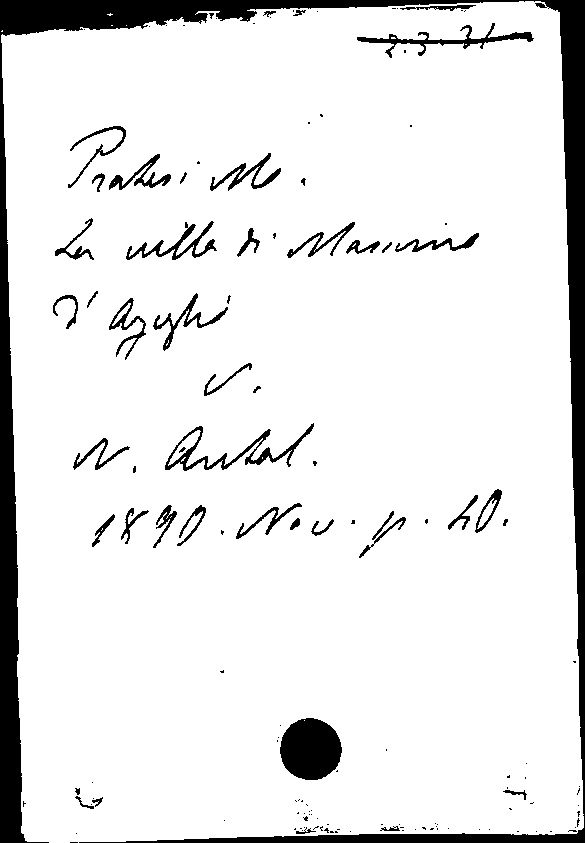 2.3.31
Pratesi M.
La villa di Massimo
d'Azeglio
V.
N. Antol.
1890. Nov. p. 40.